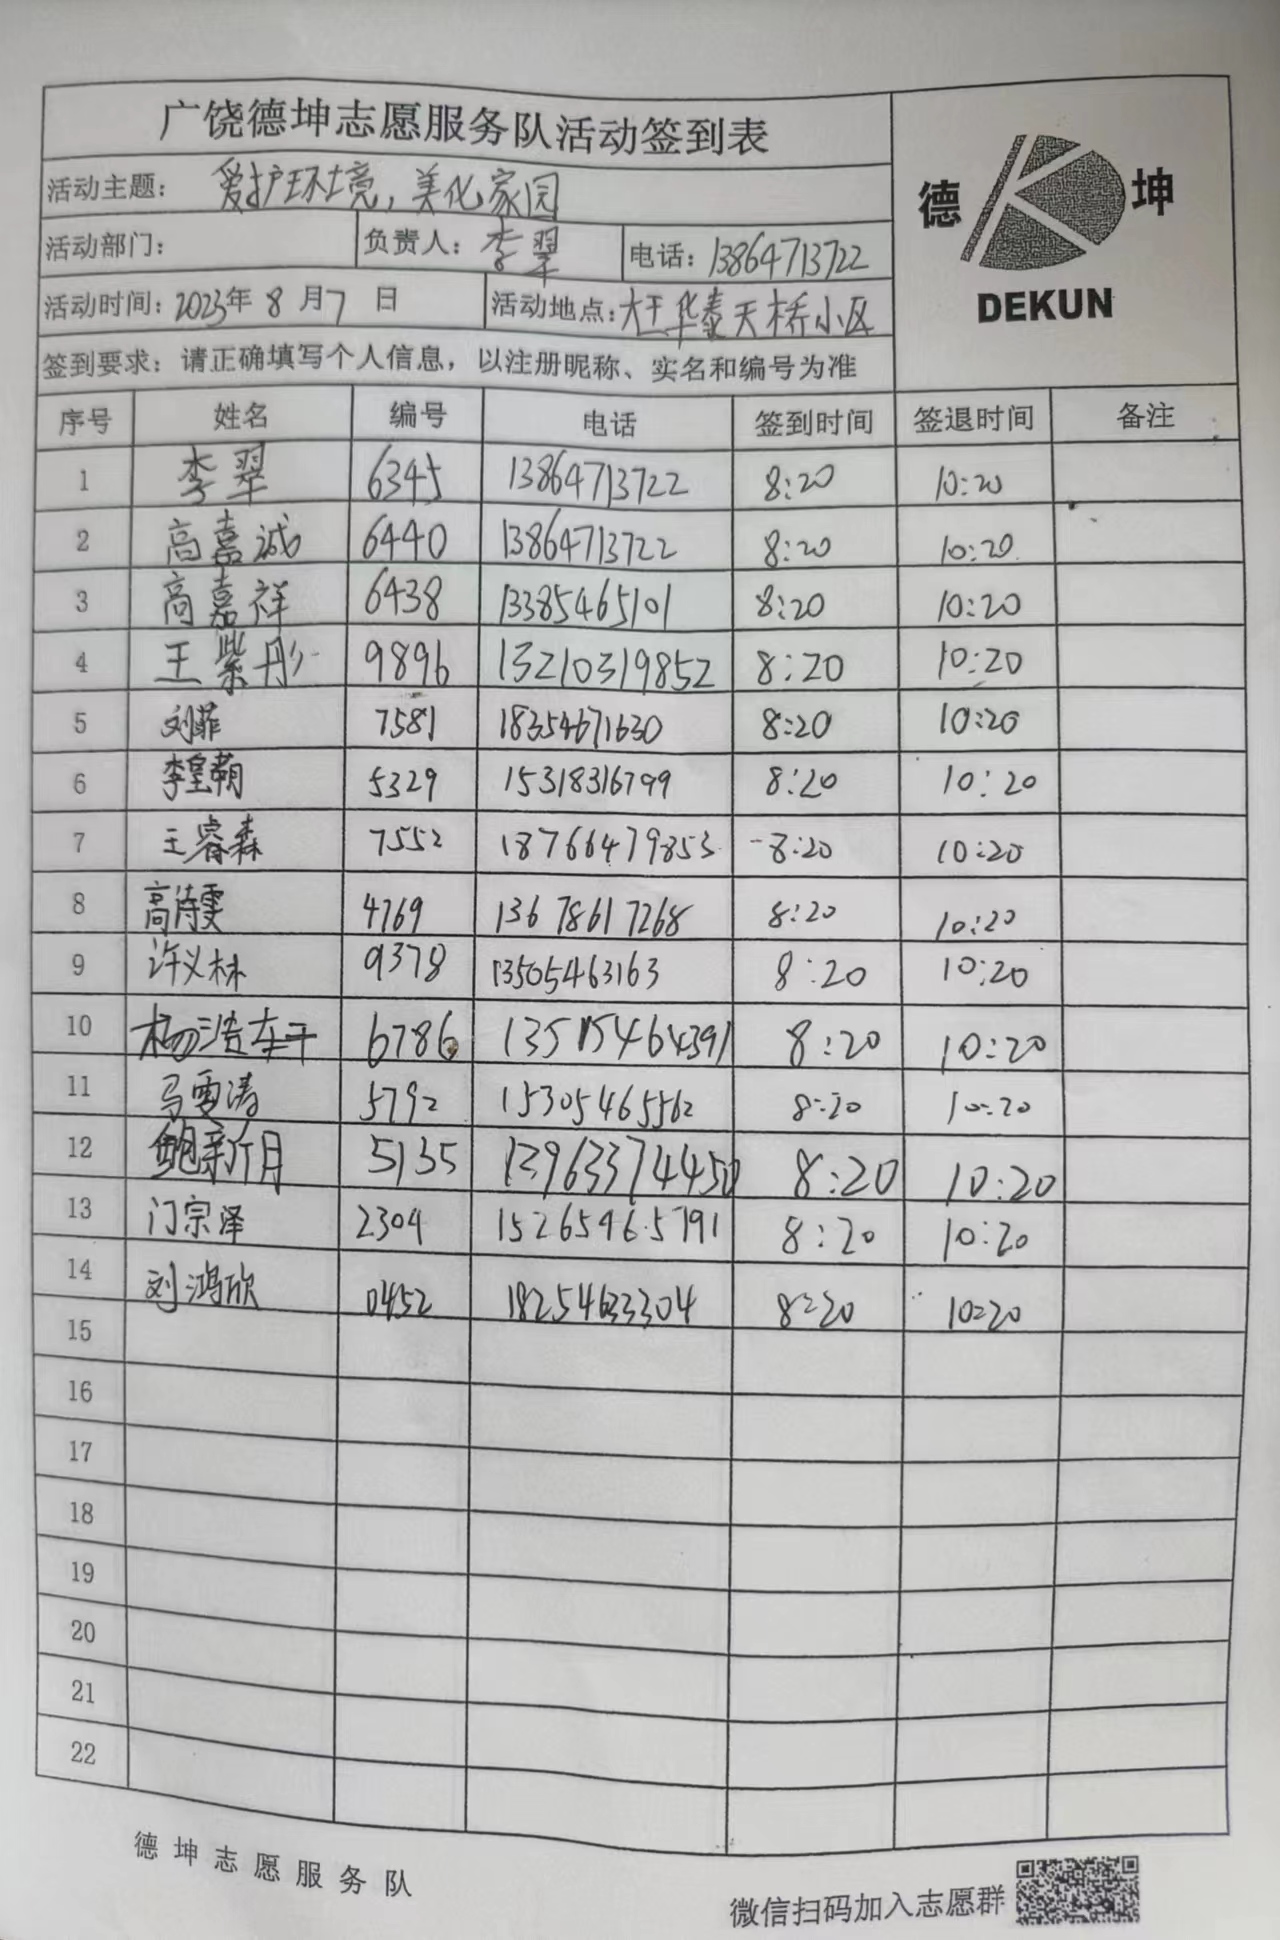 广饶德坤志愿服务队活动签到表
德 坤
DEKUN
活动主题： 爱护环境，美化家园
活动部门： 负责人： 李翠 电话：13864713722
活动时间：2023年 8 月 7 日 活动地点：大王华泰天桥小区
签到要求：请正确填写个人信息，以注册昵称、实名和编号为准
序号 姓名 编号 电话 签到时间 签退时间 备注
1 李翠 6345 13864713722 8:20 10:20
2 高嘉诚 6440 13864713722 8:20 10:20
3 高嘉祥 6438 13385465101 8:20 10:20
4 王紫彤 9896 13210319852 8:20 10:20
5 刘菲 7581 18354671630 8:20 10:20
6 5329 15318316799 8:20 10:20
7 王睿森 7552 18766479853 8:20 10:20
8 高诗雯 4769 13678617268 8:20 10:20
9 许义林 9378 13505463163 8:20 10:20
10 杨浩 6786 13515464391 8:20 10:20
11 马雪涛 5792 15305465562 8:20 10:20
12 鲍新月 5135 13963374450 8:20 10:20
13 门宗泽 2304 15265465791 8:20 10:20
14 刘鸿欣 0452 18254633304 8:20 10:20
15
16
17
18
19
20
21
22
德坤志愿服务队
微信扫码加入志愿群